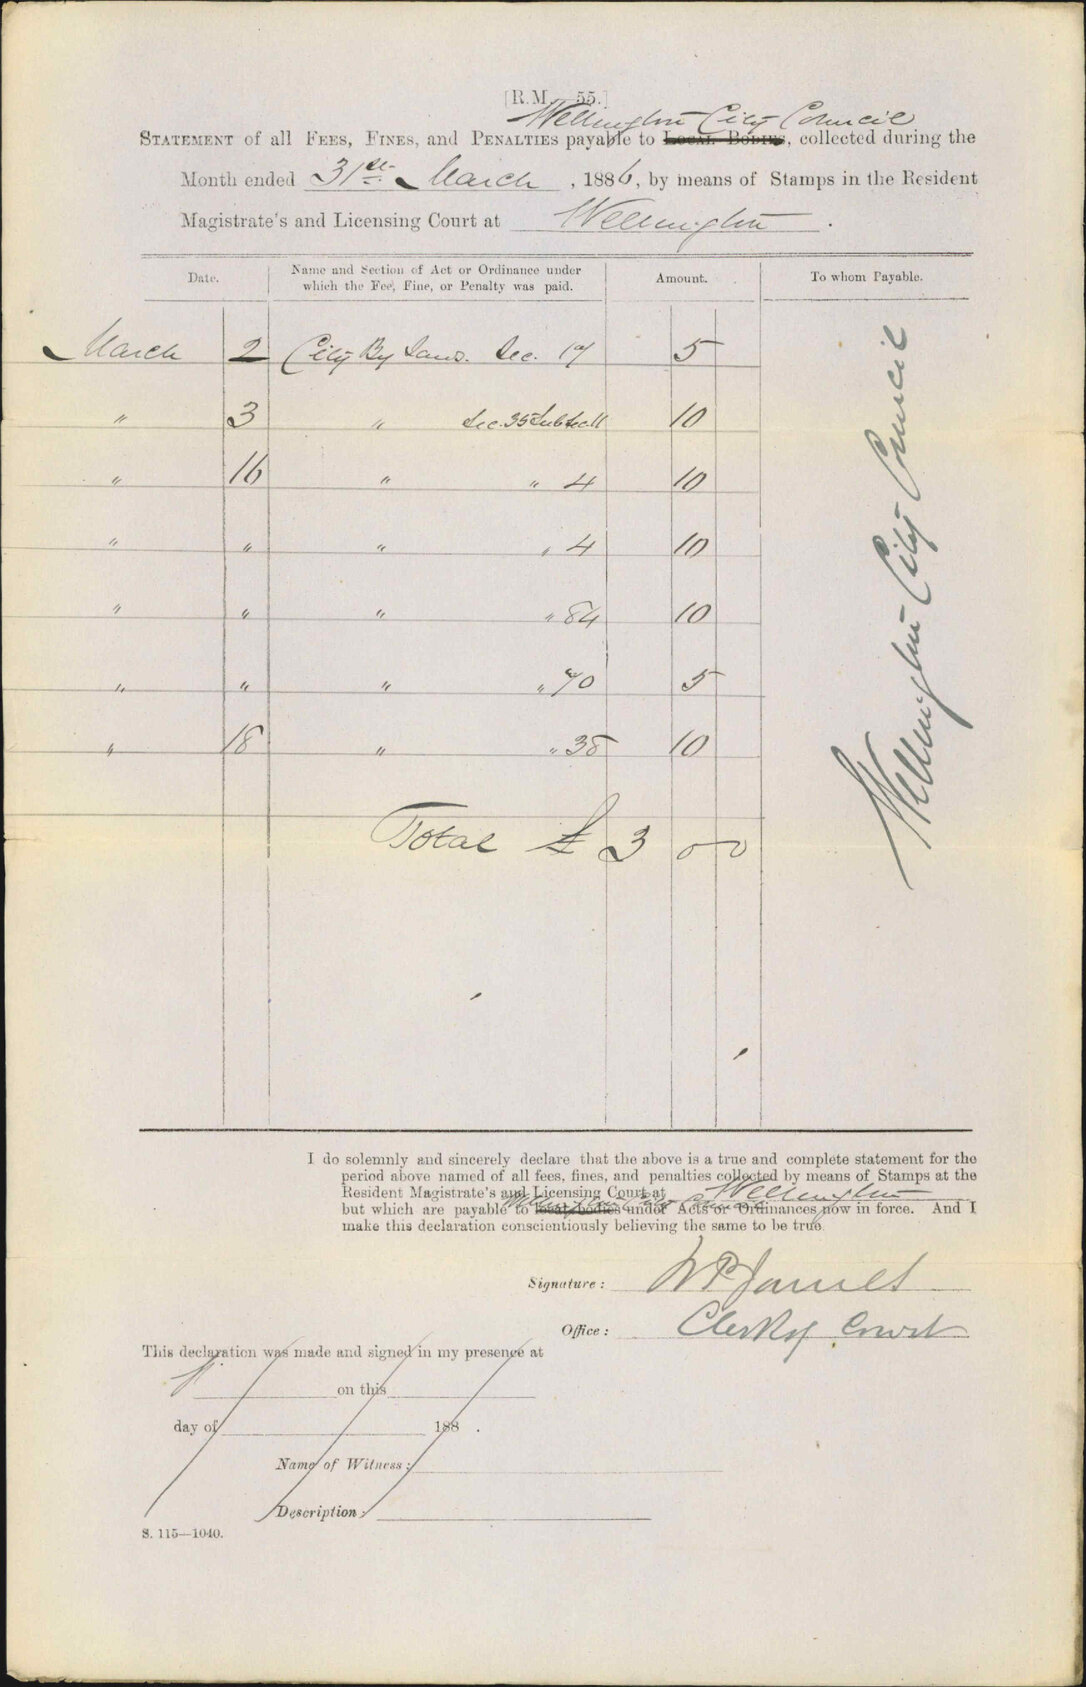 [R.M. 55.]
Wellington City Council
STATEMENT of all FEES, FINES, and PENALTIES payable to LOCAL BODIES, collected during the
Month ended 31st March, 1886, by means of Stamps in the Resident
Magistrate's and Licensing Court at Wellington.
Date. Name and Section of Act or Ordinance under which the Fee, Fine, or Penalty was paid. Amount. To whom Payable.
March 2 City By Laws. Sec. 17 5
" 3 " Sec. 35 Sub Sec. 11 10
" 16 " " 4 10
" " " " 4 10
" " " " 84 10
" " " " 70 5
" 18 " " 38 10
Total £ 3 0 0
Wellington City Council
I do solemnly and sincerely declare that the above is a true and complete statement for the
period above named of all fees, fines, and penalties collected by means of Stamps at the
Resident Magistrate's and Licensing Court at Wellington
Wellington City Council
but which are payable to local bodies under Acts or Ordinances now in force. And I
make this declaration conscientiously believing the same to be true.
Signature: W P James
Office: Clerk of Court
This declaration was made and signed in my presence at
on this
day of 188 .
Name of Witness:
Description:
S. 115—1040.